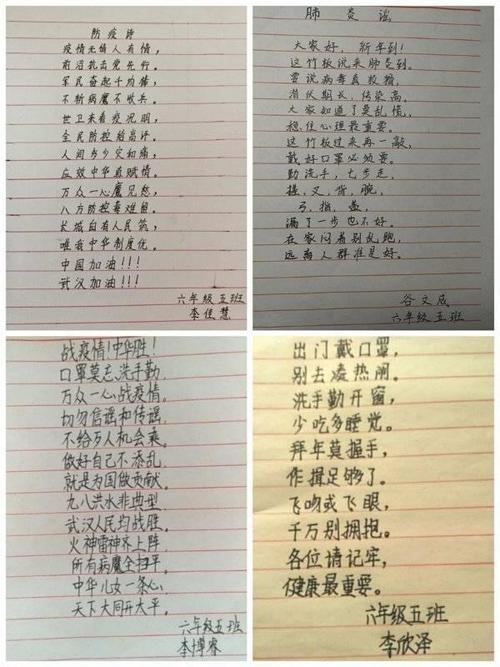 防疫诗
疫情无情人有情,
前沿抗击爱先行。
军民奋起千均棒,
不斩病魔不收兵。
世卫来看疫况明,
全民防控给高评。
人间多少灾和痛,
应效中华真赋情。
万众一心魔见愁,
八方防控毒难留。
长城自有人民筑,
唯我中华制度优。
中国加油!!!
武汉加油!!!
六年级五班
李佳慧
肺炎谣
大家好,新年到!
这竹板说来肺炎到。
要说病毒真狡猾,
潜伏期长,传染高。
大家知道了是乱慌,
稳住心理最重要。
这竹板过来再一敲,
戴好口罩必须要。
勤洗手,七步走,
搓,叉,背,腕,
弓,指,盖,
漏了一步也不好。
在家闷着别乱跑,
远离人群准是好。
谷文成
六年级五班
战疫情!中华胜!
口罩莫忘洗手勤,
万众一心战疫情。
切勿信谣和传谣,
不给万人机会乘。
做好自己不添乱,
就是为国做贡献。
九八洪水非典型
武汉人民均战胜。
火神雷神齐上阵
所有病魔全扫平。
中华儿女一条心,
天下大同开太平。
六年级五班
李博睿
出门戴口罩,
别去凑热闹。
洗手勤开窗,
少吃多睡觉。
拜年莫握手,
作揖足够了。
飞吻或飞眼,
千万别拥抱。
各位请记牢,
健康最重要。
六年级五班
李欣泽